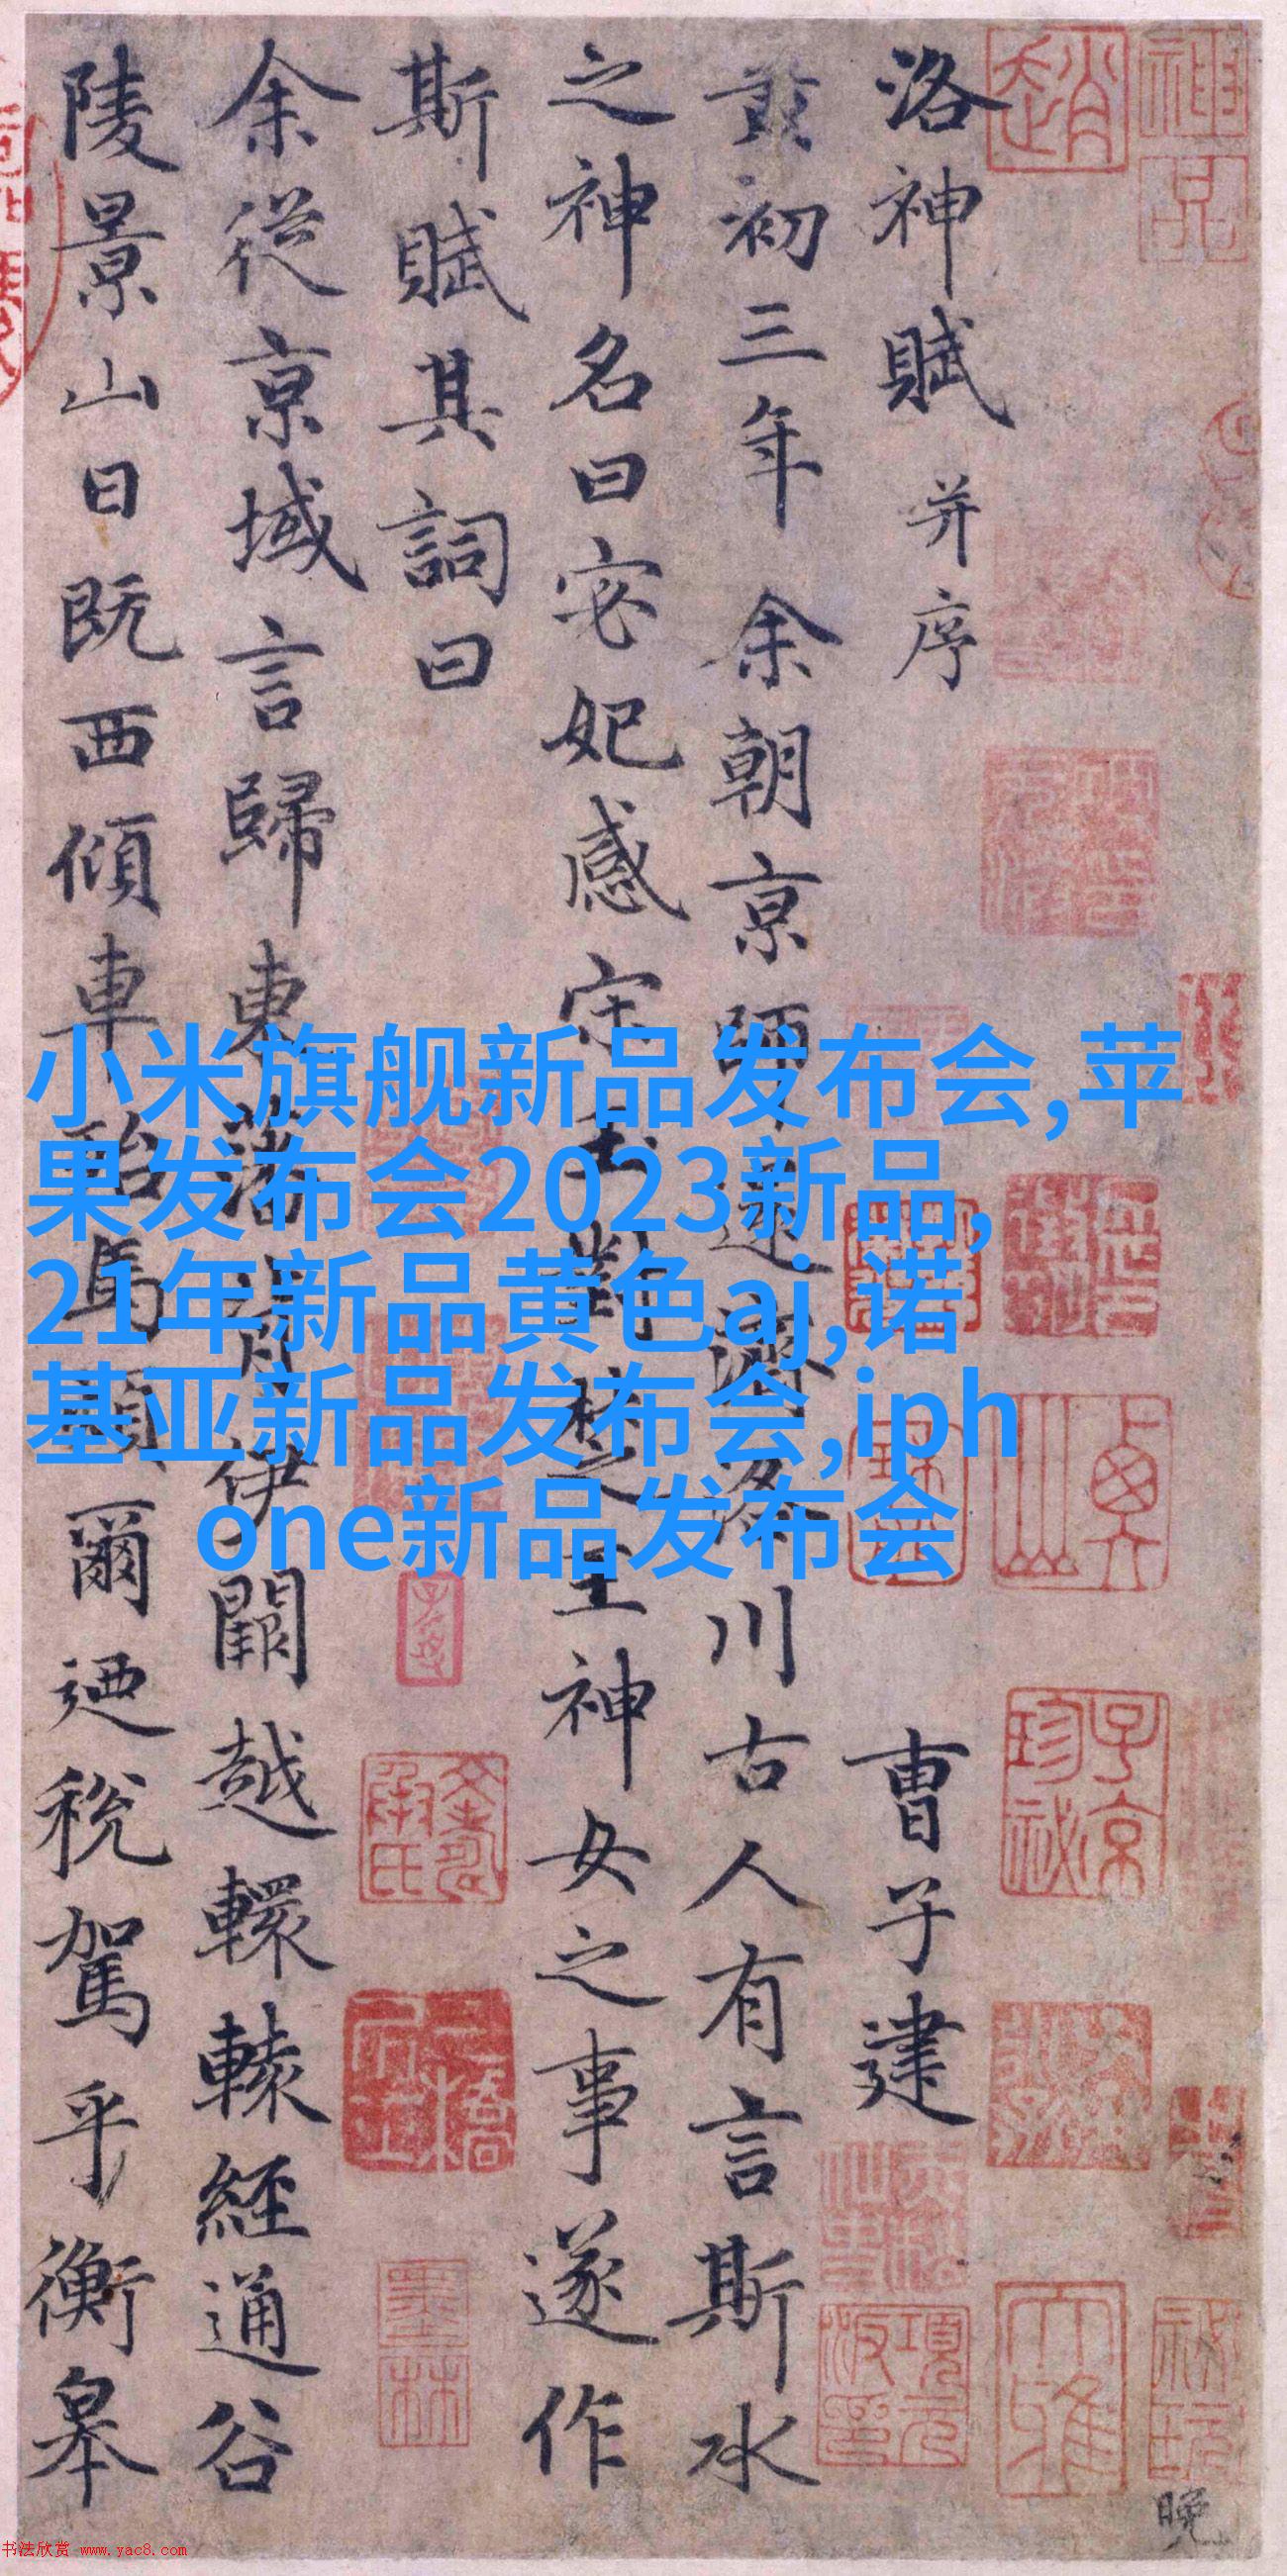 洛神賦 并序
曹子建
黄初三年余朝京師還濟洛川古人有言斯水
之神名曰宓妃感宋玉對楚王神女之事遂作
斯賦其詞曰
余從京域言歸東藩背伊闕越轘轅經通谷
陵景山日既西傾車殆馬煩爾迺税駕乎衡皋
小米旗舰新品发布会,苹
果发布会2023新品,
21年新品黄色aj,诺
基亚新品发布会,iph
one新品发布会
子京
珍祕
項元
汴印
墨
林
晚
书法欣赏 www.yac8.com